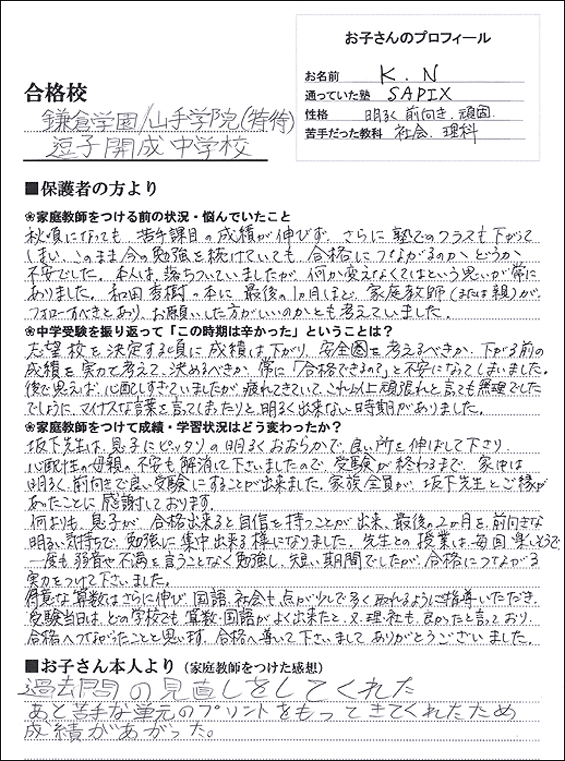 お子さんのプロフィール
お名前 K.N
通っていた塾 SAPIX
性格 明るく 前向き. 頑固.
苦手だった教科 社会、理科
合格校
鎌倉学園/山手学院(特待)
逗子開成中学校
■保護者の方より
❀家庭教師をつける前の状況・悩んでいたこと
秋頃になっても、苦手課目の成績が伸びず、さらに塾でのクラスも下がって
しまい、このまま今の勉強を続けていても、合格につながるのか、どうか、
不安でした。本人は、落ちついていましたが、何か変えなくてはという思いが常に
ありました。和田秀樹の本に、最後の1ヵ月ほど、家庭教師(または親)が、
フォローすべきとあり、お願いした方がいいのかとも考えていました。
❀中学受験を振り返って「この時期は辛かった」ということは?
志望校を決定する頃に成績は下がり、安全圏を考えるべきか、下がる前の
成績を実力と考えて、決めるべきか、常に「合格できるの?」と不安になってしまいました。
後で思えば、心配しすぎていましたが、疲れてきていて、これ以上頑張れと言っても無理でした
でしょうに、マイナスな言葉を言ってしまったりと、明るく出来ない時期がありました。
❀家庭教師をつけて成績・学習状況はどう変わったか?
坂下先生は、息子にピッタリの明るくおおらかで、良い所を伸ばして下さり
心配性の母親の不安も解消して下さいましたので、受験が終わるまで、家中は
明るく、前向きで良い受験にすることが出来ました。家族全員が、坂下先生とご縁が
あったことに感謝しております。
何よりも、息子が、合格出来ると自信を持つことが出来、最後の2ヵ月を、前向きな
明るい気持ちで、勉強に集中出来る様になりました。先生との授業は、毎回楽しそうで
一度も弱音や不満を言うことなく勉強し、短い期間でしたが、合格につながる
実力をつけて下さいました。
得意な算数はさらに伸び、国語、社会も、点が少しで多く取れるようにご指導いただき、
受験当日は、どの学校でも算数・国語がよく出来たと、又、理社も良かったと言っており、
合格へつながったことと思います。合格へ導いて下さいまして、ありがとうございました。
■お子さん本人より(家庭教師をつけた感想)
過去問の見直しをしてくれた
あと苦手な単元のプリントをもってきてくれたため
成績があがった。